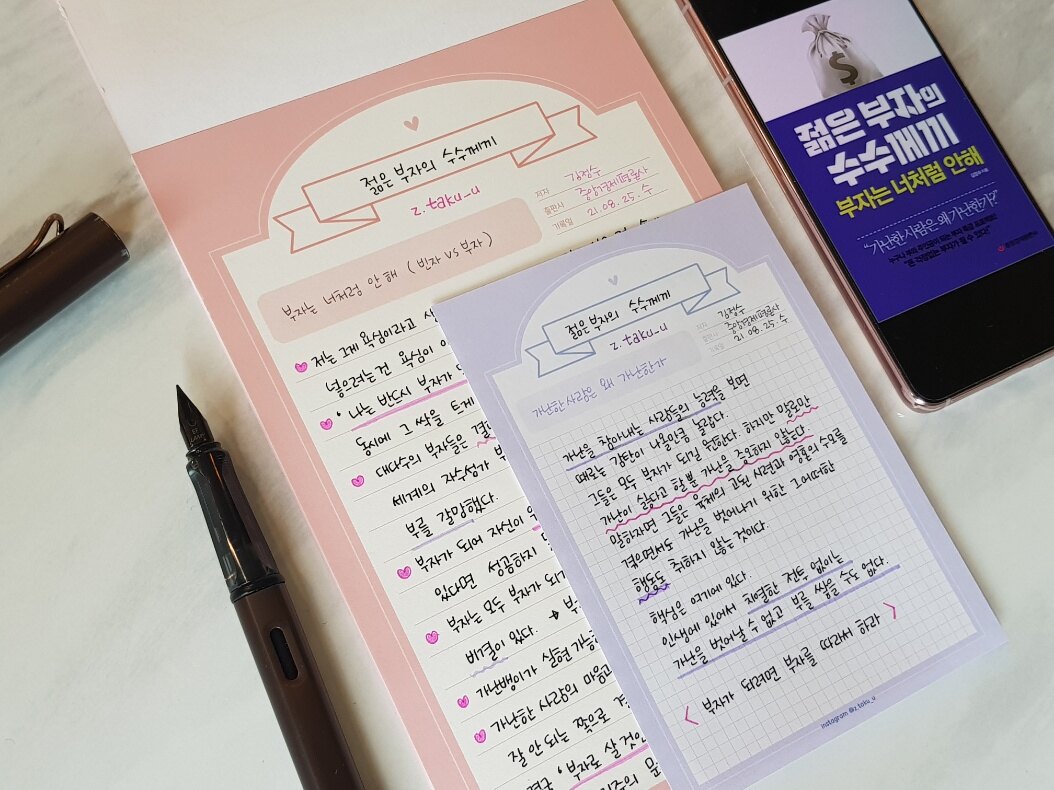 젊은 부자의 수수께끼
z.taku_u
저자 김정수
출판사 중앙경제평론사
기록일 21.08.25.수
부자는 너처럼 안 해 (빈자 vs 부자)
저는 그게 욕심이라고
넣으려는건 욕심이
' 나는 반드시 부자가
동시에 그 싹을 틔게
대다수의 부자들은
세계의 자수성가
부를 갈망했다.
부자가 되어 자신이
있다면 성공하지
부자는 모두 부자가 되기
비결이 있다. → 부
가난뱅이가 실현 가능
가난한 사람의 마음
잘 안 되는 쪽으로
결국 '부자로 살 것인
젊은 부자의 수수께끼
z.taku_u
저자 김정수
출판사 중앙경제평론사
기록일 21.08.25.수
가난한 사람은 왜 가난한가
가난을 참아내는 사람들의 능력을 보면
때로는 감탄이 나올만큼 놀랍다.
그들은 모두 부자가 되길 원한다. 하지만 말로만
가난이 싫다고 할 뿐 가난을 증오하지 않는다
말하자면 그들은 육체의 고된 시련과 영혼의 수모를
겪으면서도 가난을 벗어나기 위한 그어떠한
행동도 취하지 않는 것이다.
핵심은 여기에 있다.
인생에 있어서 치열한 전투 없이는
가난을 벗어날 수 없고 부를 쌓을 수도 없다.
< 부자가 되려면 부자를 따라서 하라 >
instagram @z.taku_u
$
젊은 부자의
수수께끼
부자는 너처럼 안해
김정수 지음
"가난한 사람은 왜 가난한가?"
중앙경제평론사